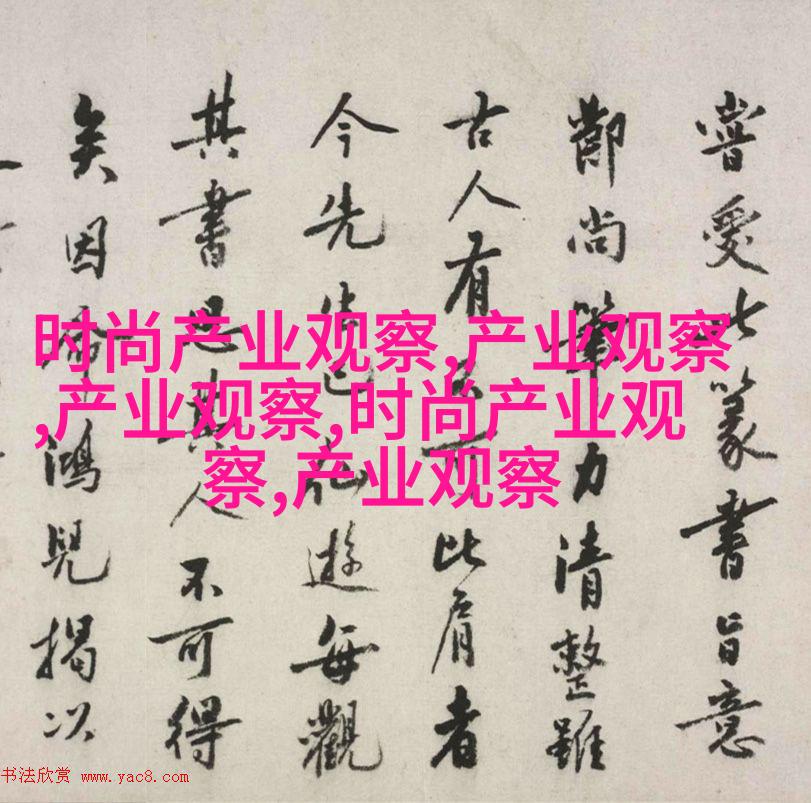 时尚产业观察,产业观察
,产业观察,时尚产业观
察,产业观察
嘗此篆書旨意
尚筆力清整雖
古人有比肩者
今先生已遊每觀
其書思其人不可得
矣因鴻兒揭以
书法欣赏 www.yac8.com